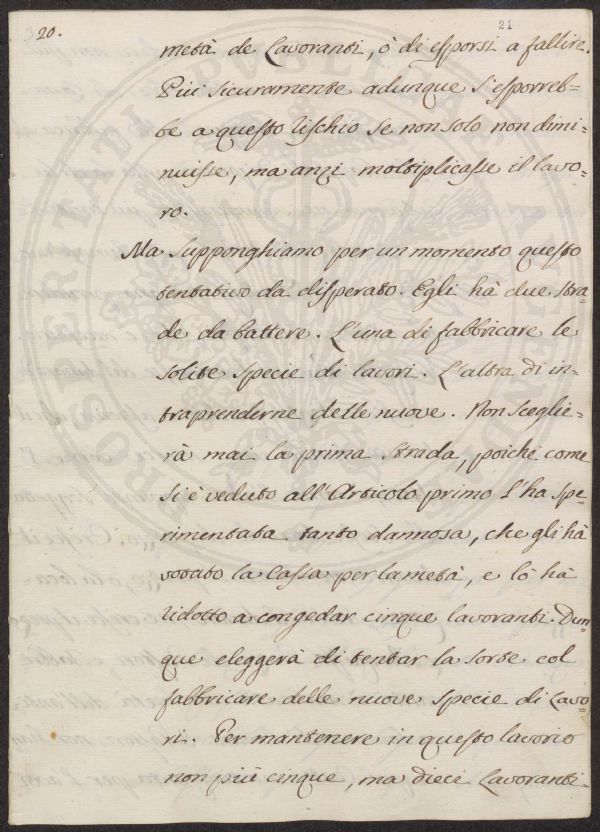 20.
21
metà de Lavoranti, ò di esporsi a fallire.
Più sicuramente adunque s'esporreb=
be a questo rischio se non solo non dimi=
nuisse, ma anzi moltiplicasse il lavo=
ro.
Ma supponghiamo per un momento questo
tentativo da disperato. Egli hà due stra=
de da battere. L'una di fabbricare le
solite specie di lavori. L'altra di in=
traprenderne delle nuove. Non sceglie=
rà mai la prima strada, poiche come
si è veduto all'Articolo primo l'ha spe=
rimentata tanto dannosa, che gli hà
votato la Cassa per la metà, e lò hà
ridotto a congedar cinque lavoranti. Dun=
que eleggerà di tentar la sorte col
fabbricare delle nuove specie di Lavo=
ri. Per mantenere in questo lavorio
non più cinque, ma dieci Lavoranti.
PROSPERITATI PVBLICAE AVGENDAE